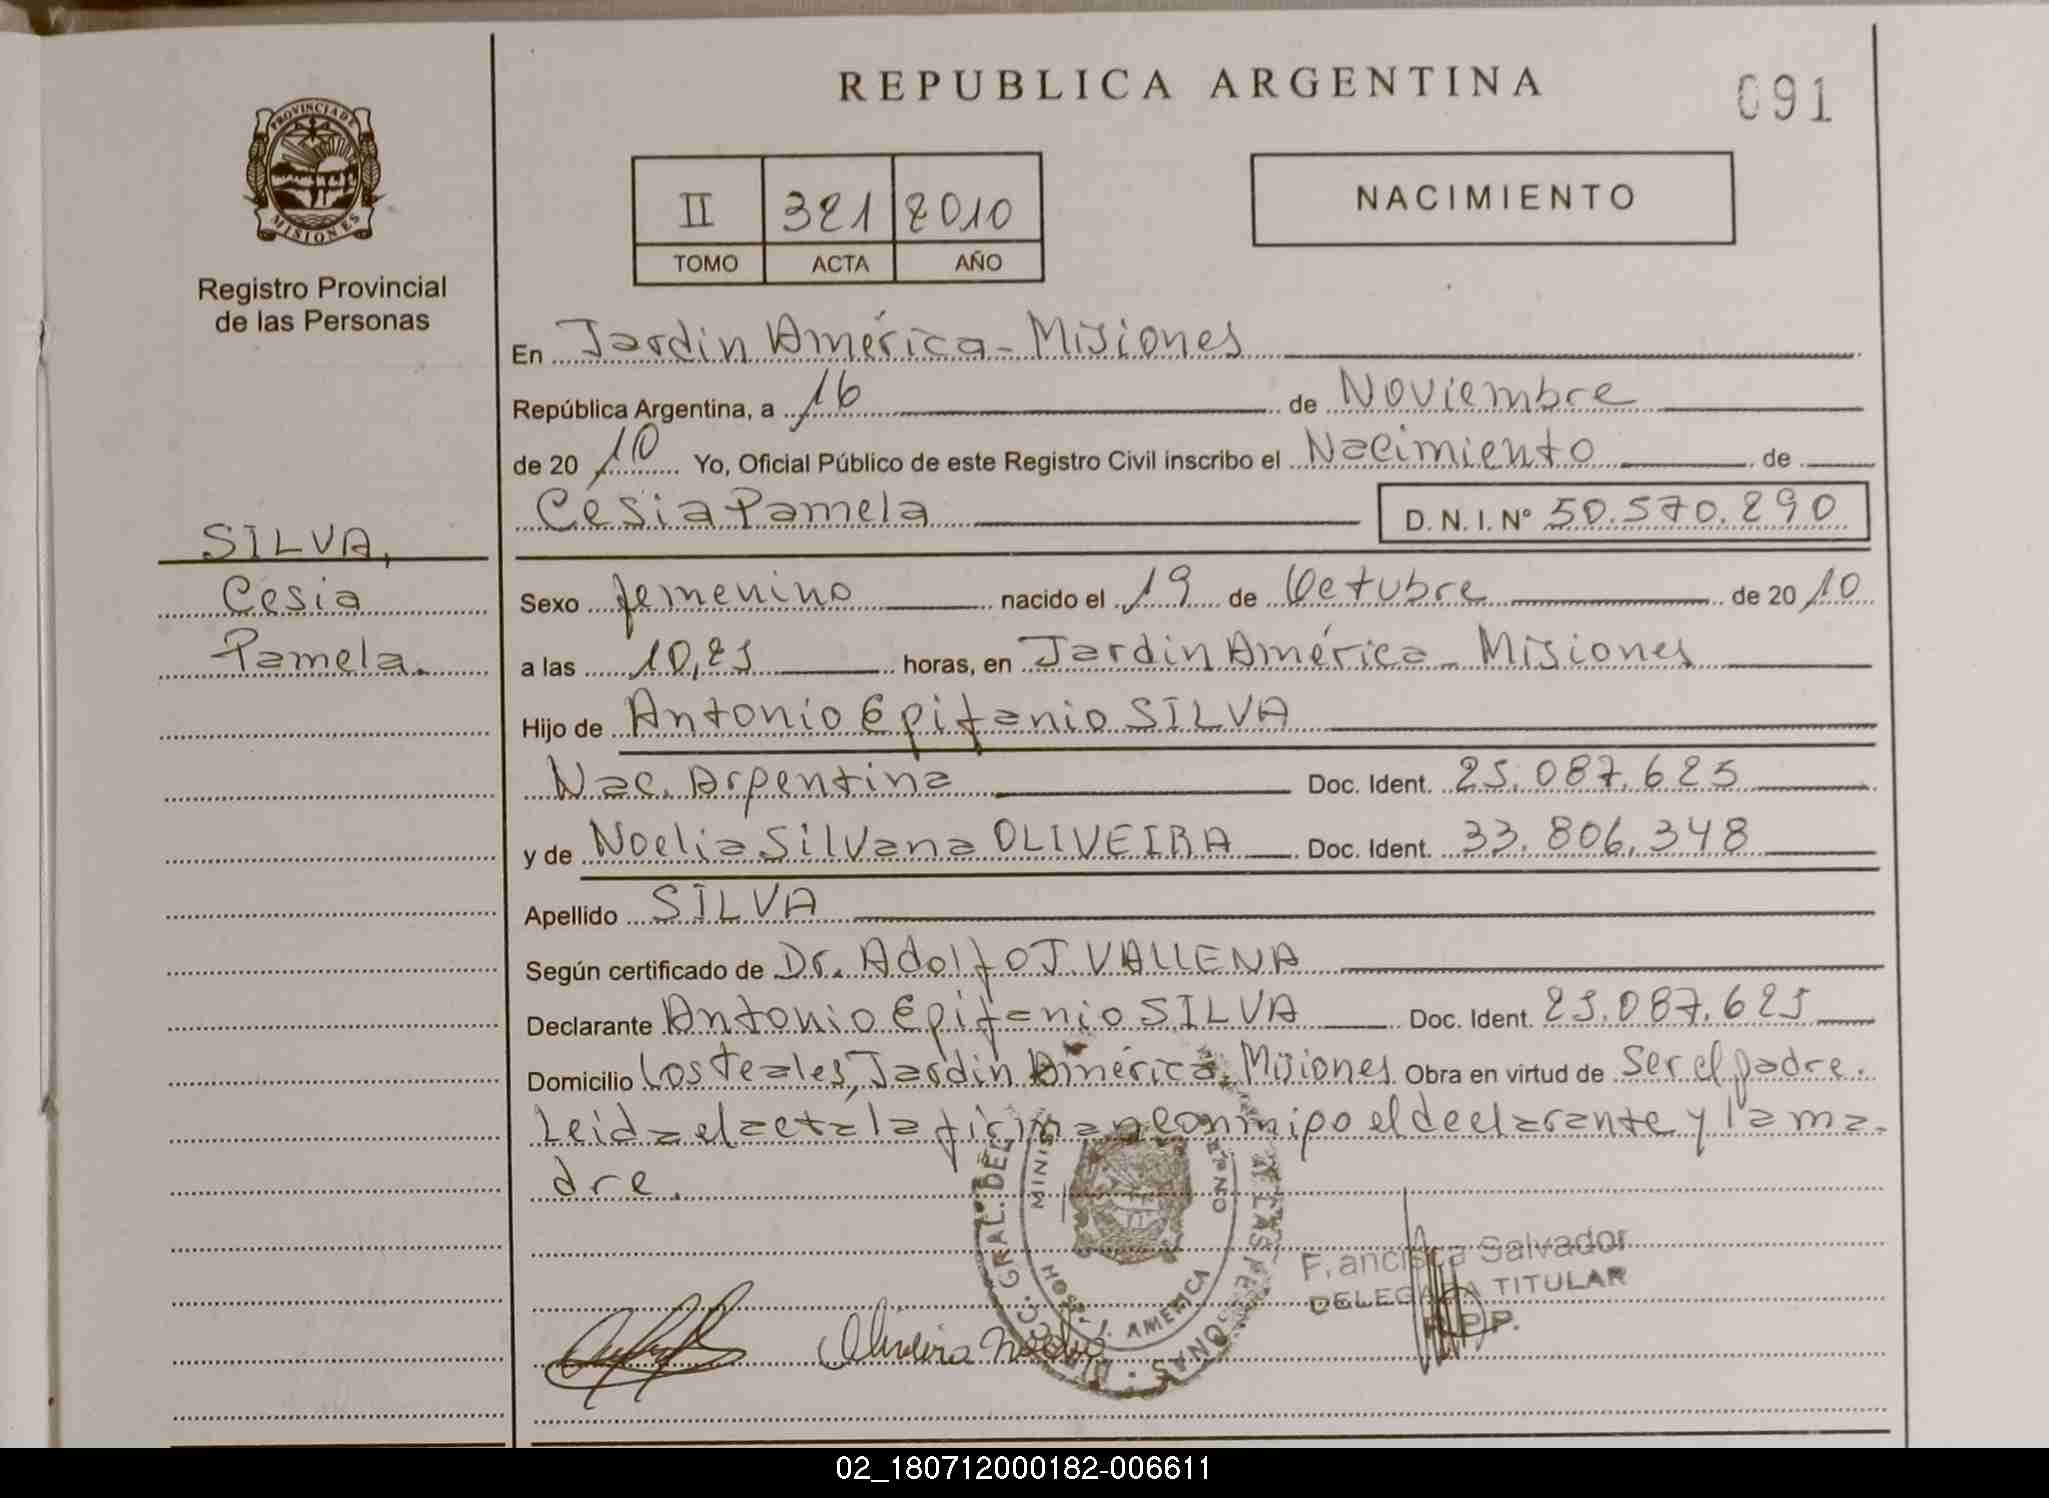 REPUBLICA ARGENTINA
091
PROVINCIA DE
MISIONES
Registro Provincial
de las Personas
II 321 2010
TOMO ACTA AÑO
NACIMIENTO
En Jardín América - Misiones
República Argentina, a 16 de Noviembre
de 20 10 Yo, Oficial Público de este Registro Civil inscribo el Nacimiento de
Cesia Pamela D. N. I. N° 50.570.290
SILVA,
Cesia
Pamela.
Sexo femenino nacido el 19 de Octubre de 20 10
a las 10,25 horas, en Jardín América - Misiones
Hijo de Antonio Epifanio SILVA
Nac. Argentina Doc. Ident. 25.087.625
y de Noelia Silvana OLIVEIRA Doc. Ident. 33.806.348
Apellido SILVA
Según certificado de Dr. Adolfo J. VALLENA
Declarante Antonio Epifanio SILVA Doc. Ident. 25.087.625
Domicilio Los Teales, Jardín América, Misiones Obra en virtud de Ser el padre.
Leída el acta, la firman conmigo el declarante y la ma-
dre.
GRAL. DEL
LAS PERSONAS
HOSP. J. AMERICA
Francisca Salvador
DELEGADA TITULAR
R.P.P.
Oliveira Noelia
02_180712000182-006611